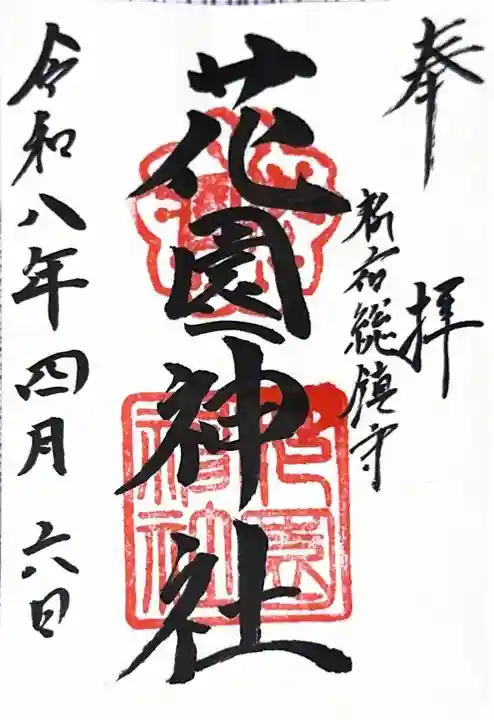 奉拝
新宿総鎮守
花園神社
令和八年四月六日
花園神社